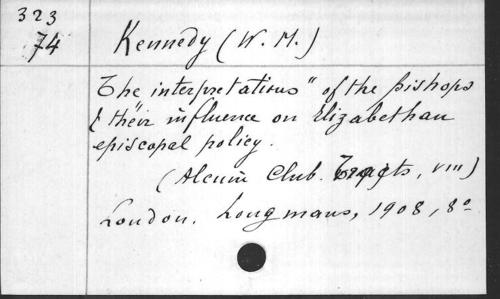 323
74
Kennedy (W. M.)
The interpretations" of the bishops
& their influence on Elizabethan
episcopal policy.
(Alcuin Club. Tracts, VIII)
London. Longmans, 1908, 8º